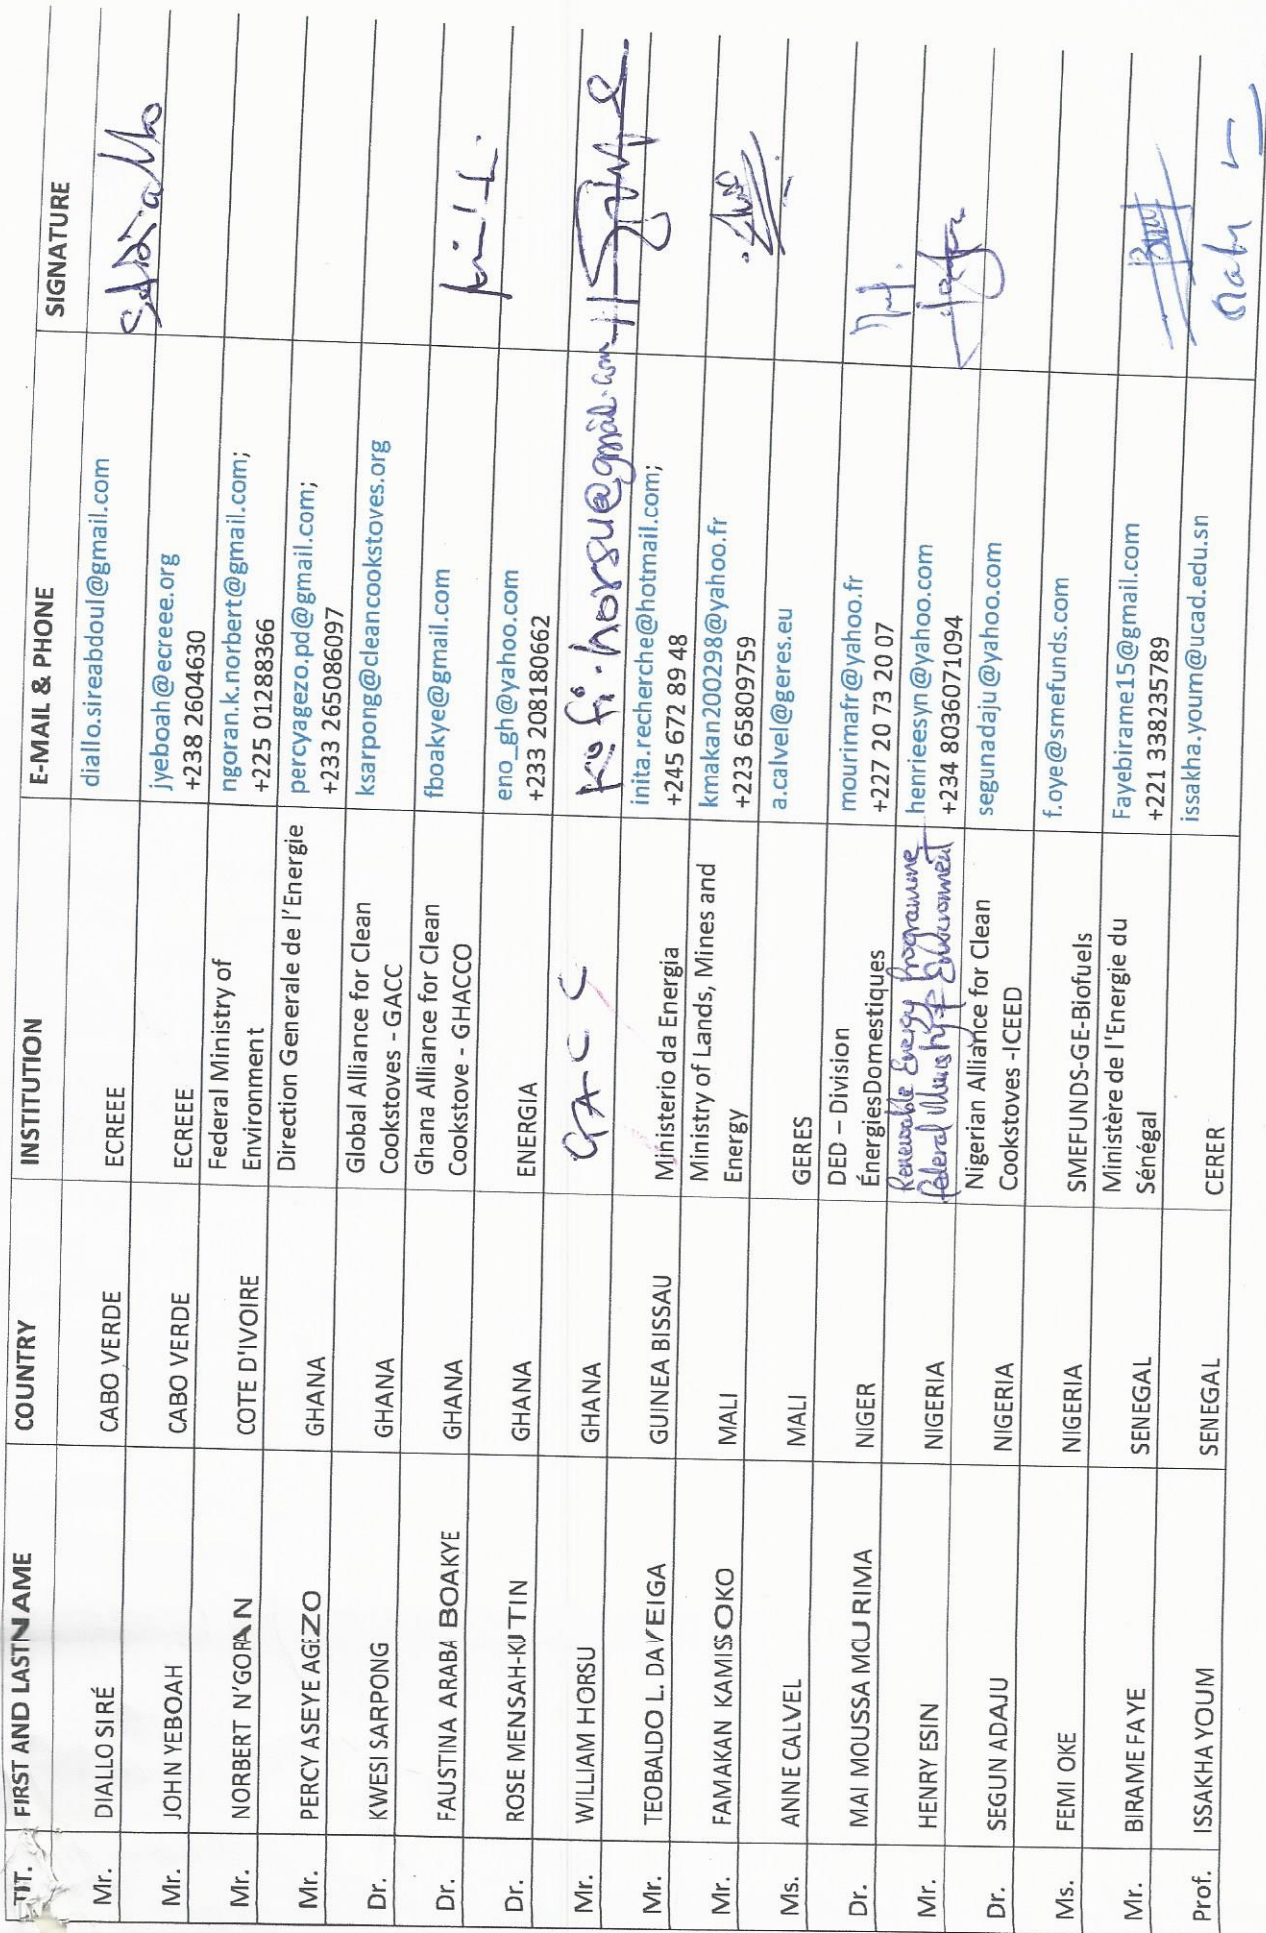 TIT. FIRST AND LASTNAME COUNTRY INSTITUTION E-MAIL & PHONE SIGNATURE
Mr. DIALLO SIRÉ CABO VERDE ECREEE diallo.sireabdoul@gmail.com
Mr. JOHN YEBOAH CABO VERDE ECREEE jyeboah@ecreee.org
+238 2604630
Mr. NORBERT N'GORAN COTE D'IVOIRE Federal Ministry of ngoran.k.norbert@gmail.com;
Environment +225 01288366
Mr. PERCY ASEYE AGEZO GHANA Direction Generale de l'Energie percyagezo.pd@gmail.com;
+233 265086097
Dr. KWESI SARPONG GHANA Global Alliance for Clean ksarpong@cleancookstoves.org
Cookstoves - GACC
Dr. FAUSTINA ARABA BOAKYE GHANA Ghana Alliance for Clean fboakye@gmail.com
Cookstove - GHACCO
Dr. ROSE MENSAH-KUTIN GHANA ENERGIA eno_gh@yahoo.com
+233 208180662
Mr. WILLIAM HORSU GHANA GACC kofi.horsu@gmail.com
Mr. TEOBALDO L. DAVEIGA GUINEA BISSAU Ministerio da Energia inita.recherche@hotmail.com;
+245 672 89 48
Mr. FAMAKAN KAMISSOKO MALI Ministry of Lands, Mines and kmakan200298@yahoo.fr
Energy +223 65809759
Ms. ANNE CALVEL MALI GERES a.calvel@geres.eu
Dr. MAI MOUSSA MOURIMA NIGER DED – Division mourimafr@yahoo.fr
ÉnergiesDomestiques +227 20 73 20 07
Mr. HENRY ESIN NIGERIA Renewable Energy Programme henrieesyn@yahoo.com
Federal Ministry of Environment +234 8036071094
Dr. SEGUN ADAJU NIGERIA Nigerian Alliance for Clean segunadaju@yahoo.com
Cookstoves -ICEED
Ms. FEMI OKE NIGERIA SMEFUNDS-GE-Biofuels f.oye@smefunds.com
Mr. BIRAME FAYE SENEGAL Ministère de l'Energie du Fayebirame15@gmail.com
Sénégal +221 338235789
Prof. ISSAKHA YOUM SENEGAL CERER issakha.youm@ucad.edu.sn